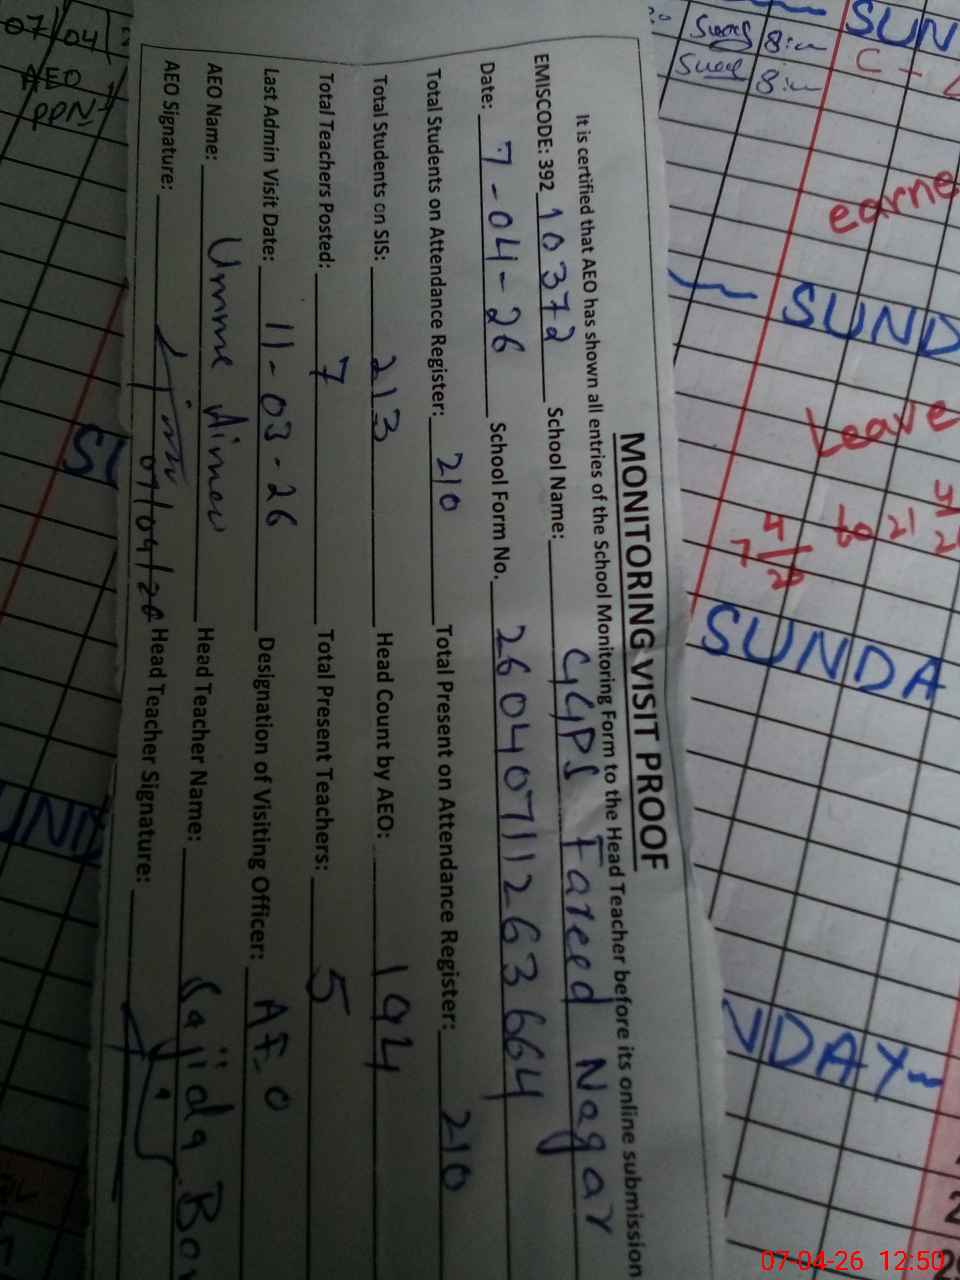 MONITORING VISIT PROOF
It is certified that AEO has shown all entries of the School Monitoring Form to the Head Teacher before its online submission
EMISCODE: 392 10372 School Name: GGPS Fareed Nagar
Date: 7-04-26 School Form No. 26040711263664
Total Students on Attendance Register: 210 Total Present on Attendance Register: 210
Total Students on SIS: 213 Head Count by AEO: 194
Total Teachers Posted: 7 Total Present Teachers: 5
Last Admin Visit Date: 11-03-26 Designation of Visiting Officer: AEO
AEO Name: Umme Aimen Head Teacher Name: Sajida
AEO Signature: 07/04/26 Head Teacher Signature:
07/04
AEO
PPN
SUN
C-
earne
SUND
Leave
7 4/26 to 21
SUNDA
NDAY
SU
UND
07-04-26 12:50